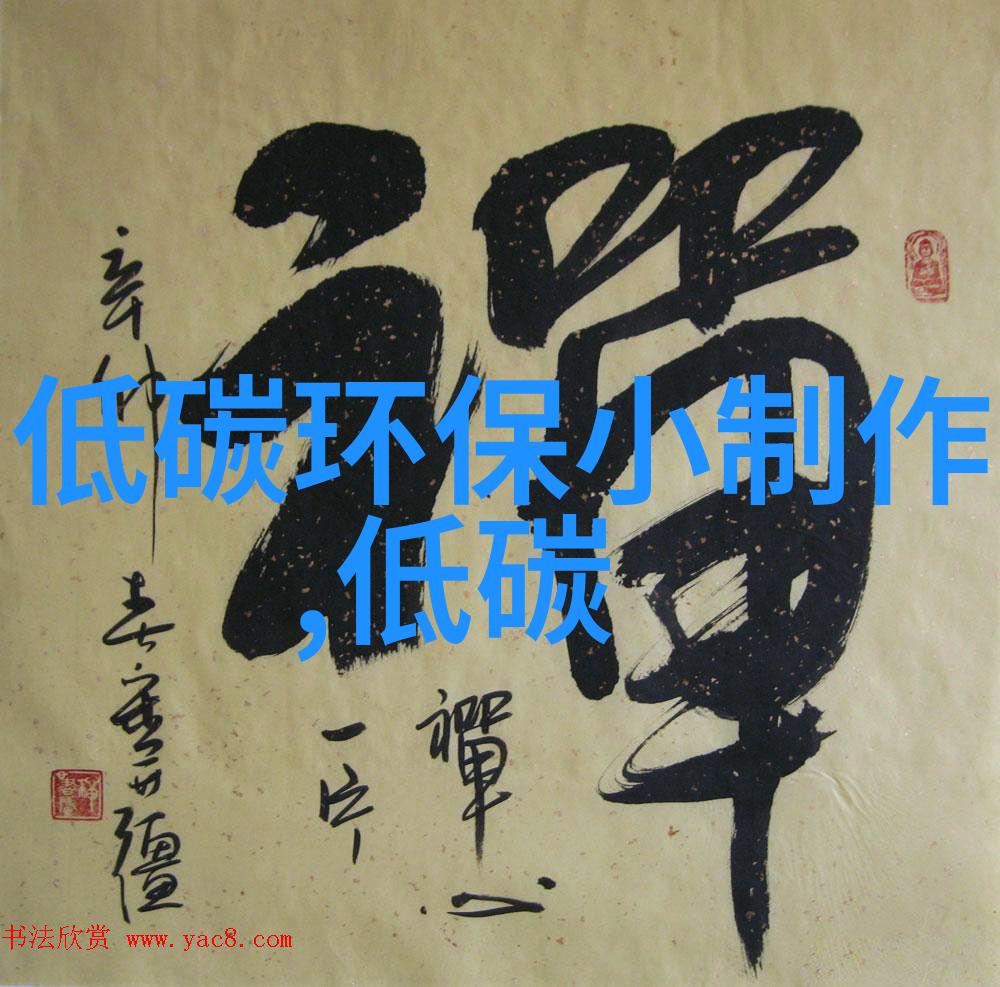 禪
禪心
一片
辛卯春
低碳环保小制作
,低碳
书法欣赏 www.yac8.com